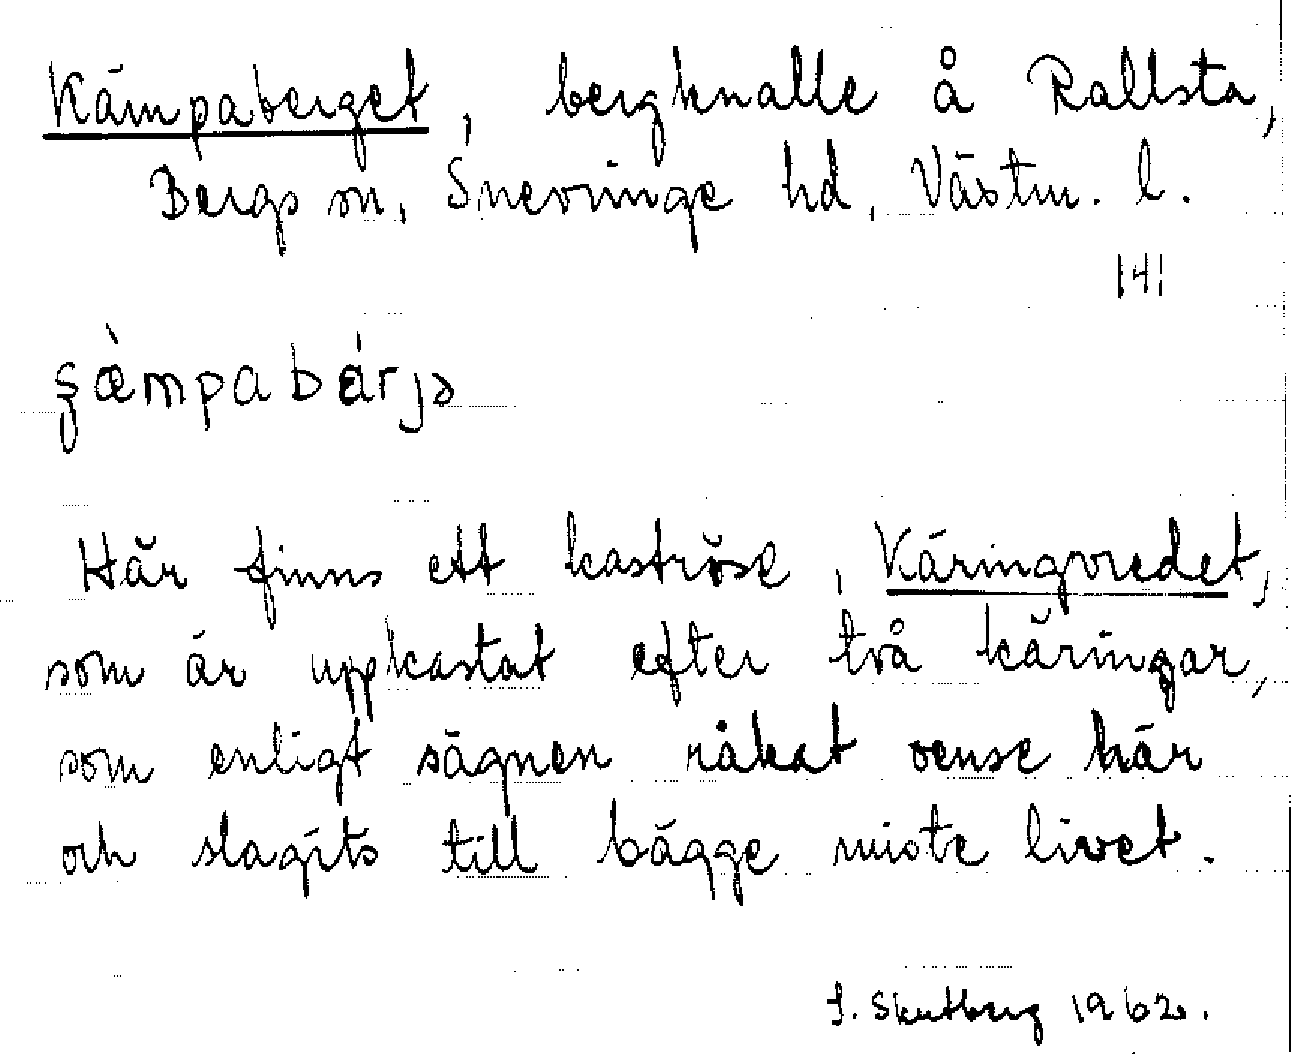 Kämpaberget, bergknalle å Rallsta,
Bergs sn, Snevringe hd, Västm. l.
141
ʂæ̀mpabárjə
Här finns ett kaströse, Käringvredet,
som är uppkastat efter två käringar,
som enligt sägnen råkat oense här
och slagits till bägge miste livet.
S. Skutberg 1962.